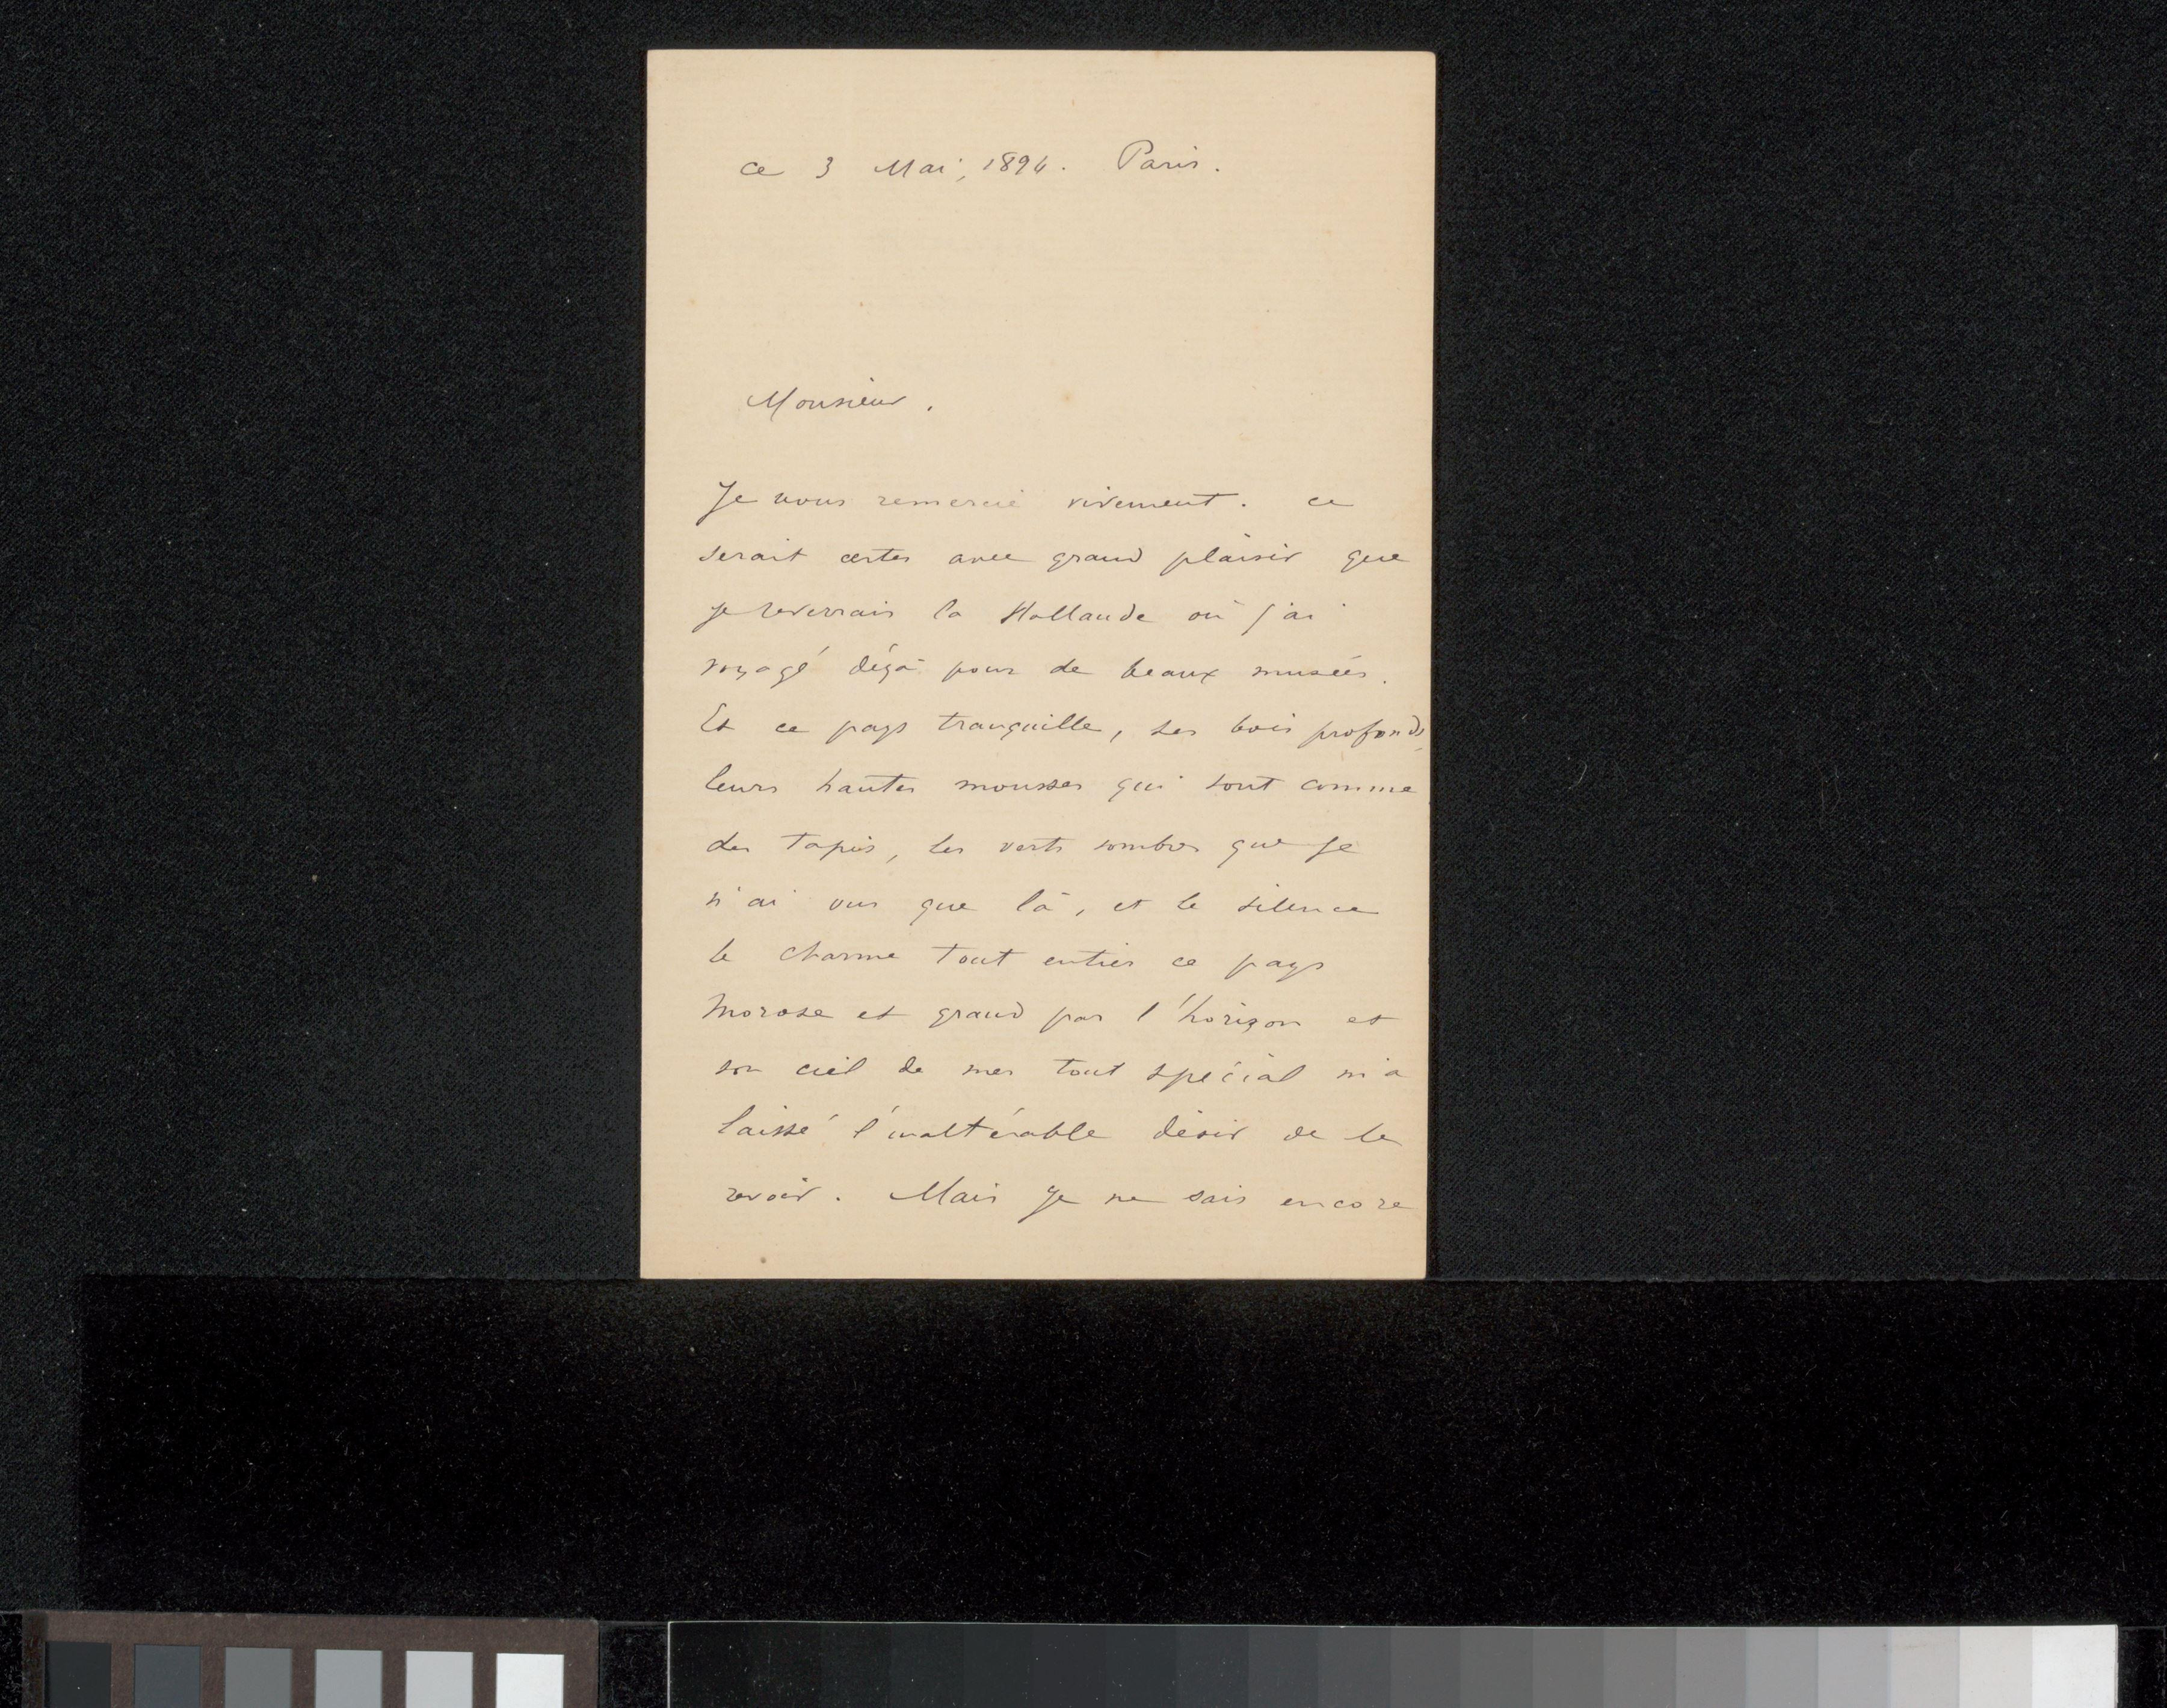 ce 3 Mai, 1894. Paris.
Monsieur.
Je vous remercie vivement. ce
serait certes avec grand plaisir que
je reverrais la Hollande où j'ai
voyagé déjà pour de beaux musées.
Et ce pays tranquille, ses bois profonds,
leurs hautes mousses qui sont comme
des tapis, les verts sombres que je
n'ai vus que là, et le silence
le charme tout entier ce pays
morose et grand par l'horizon et
son ciel de mer tout spécial m'a
laissé l'inaltérable désir de le
revoir. Mais je ne sais encore